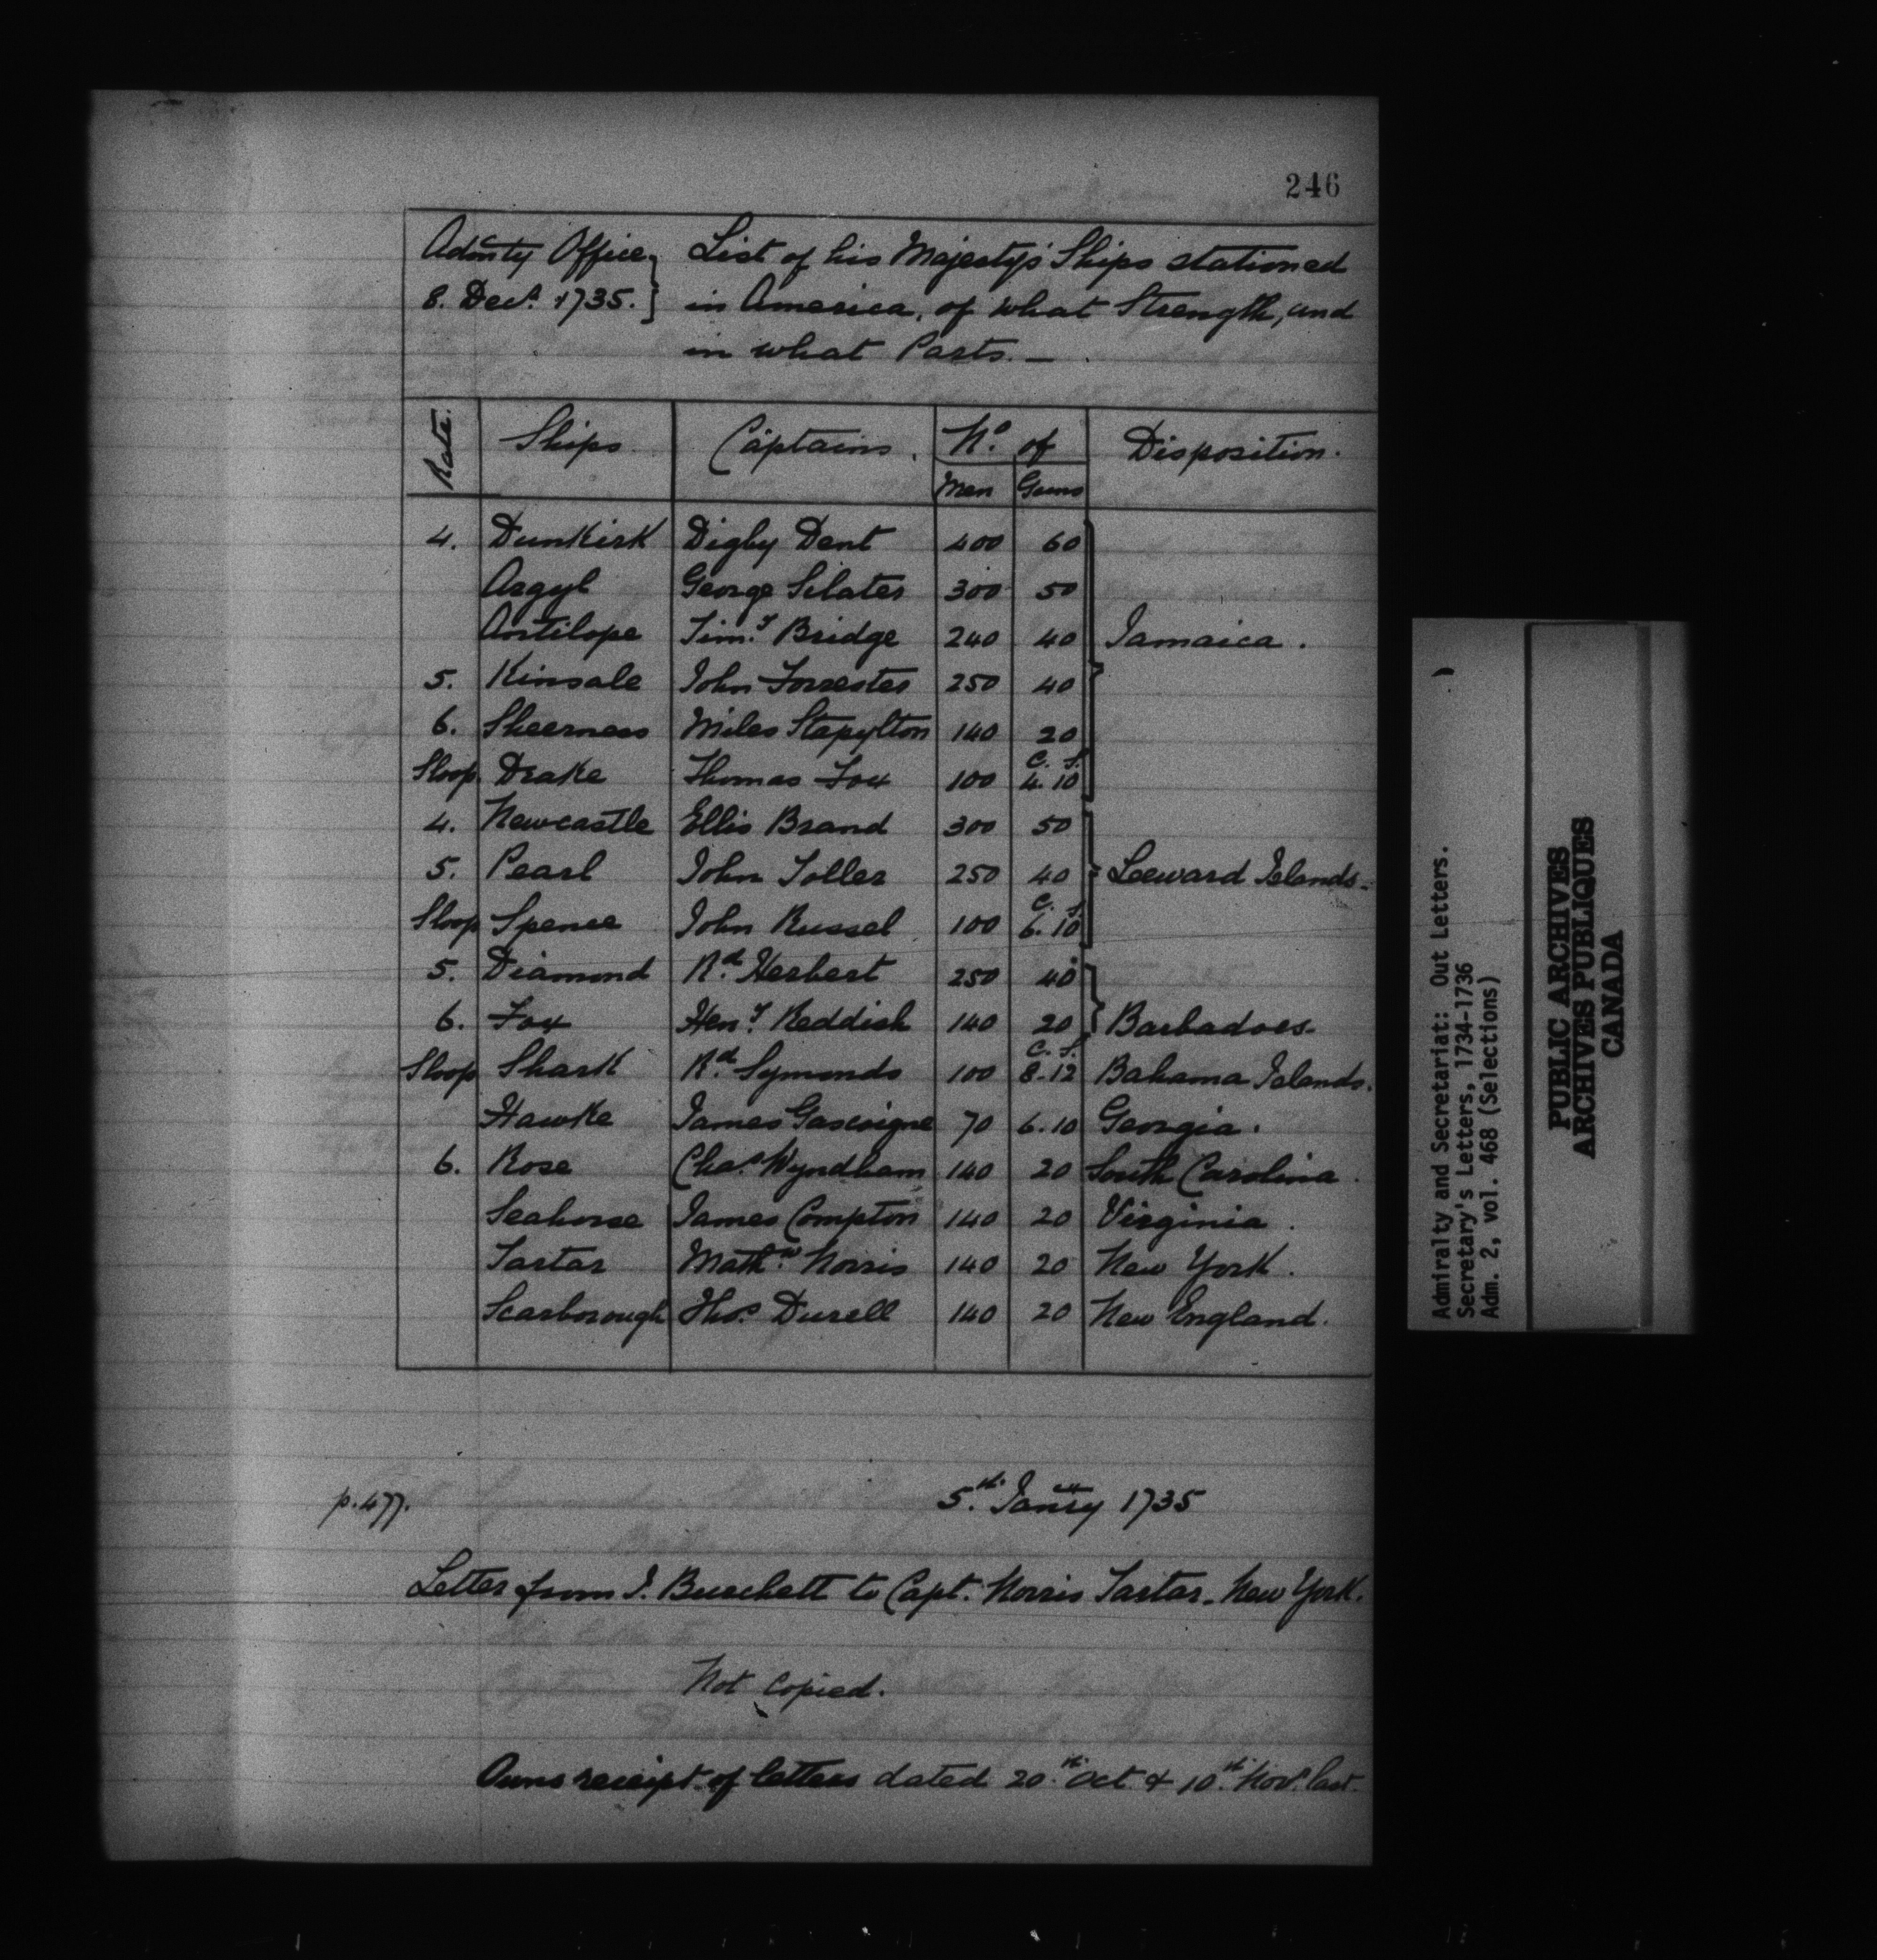 246
Admty Office } List of his Majesty's Ships stationed
8. Decr. 1735. } in America, of what Strength, and
in what Parts. —
Rate. Ships Captains. No. of Disposition.
Men Guns
4. Dunkirk Digby Dent 400 60
Argyl George Sclater 300 50
Antilope Timy. Bridge 240 40 Jamaica.
5. Kinsale John Forrester 250 40
6. Sheerness Miles Stapylton 140 20
C. S.
Sloop Drake Thomas Fox 100 4. 10
4. Newcastle Ellis Brand 300 50
5. Pearl John Toller 250 40 Leeward Islands.
C. S.
Sloop Spence John Russel 100 6. 10
5. Diamond Rd. Herbert 250 40
6. Fox Heny. Reddish 140 20 Barbadoes
C. S.
Sloop Shark Rd. Symonds 100 8-12 Bahama Islands.
Hawke James Gascoigne 70 6.10 Georgia.
6. Rose Chas. Wyndham 140 20 South Carolina.
Seahorse James Compton 140 20 Virginia.
Tartar Mathw. Norris 140 20 New York.
Scarborough Thos. Durell 140 20 New England.
p. 477. 5th. Janry 1735
Letter from J. Burchett to Capt. Norris Tartar. New York.
Not Copied.
Owns receipt of letters dated 20th. Oct. & 10th. Novr. last.
Admiralty and Secretariat: Out Letters.
Secretary's Letters, 1734-1736
Adm. 2, vol. 468 (Selections)
PUBLIC ARCHIVES
ARCHIVES PUBLIQUES
CANADA